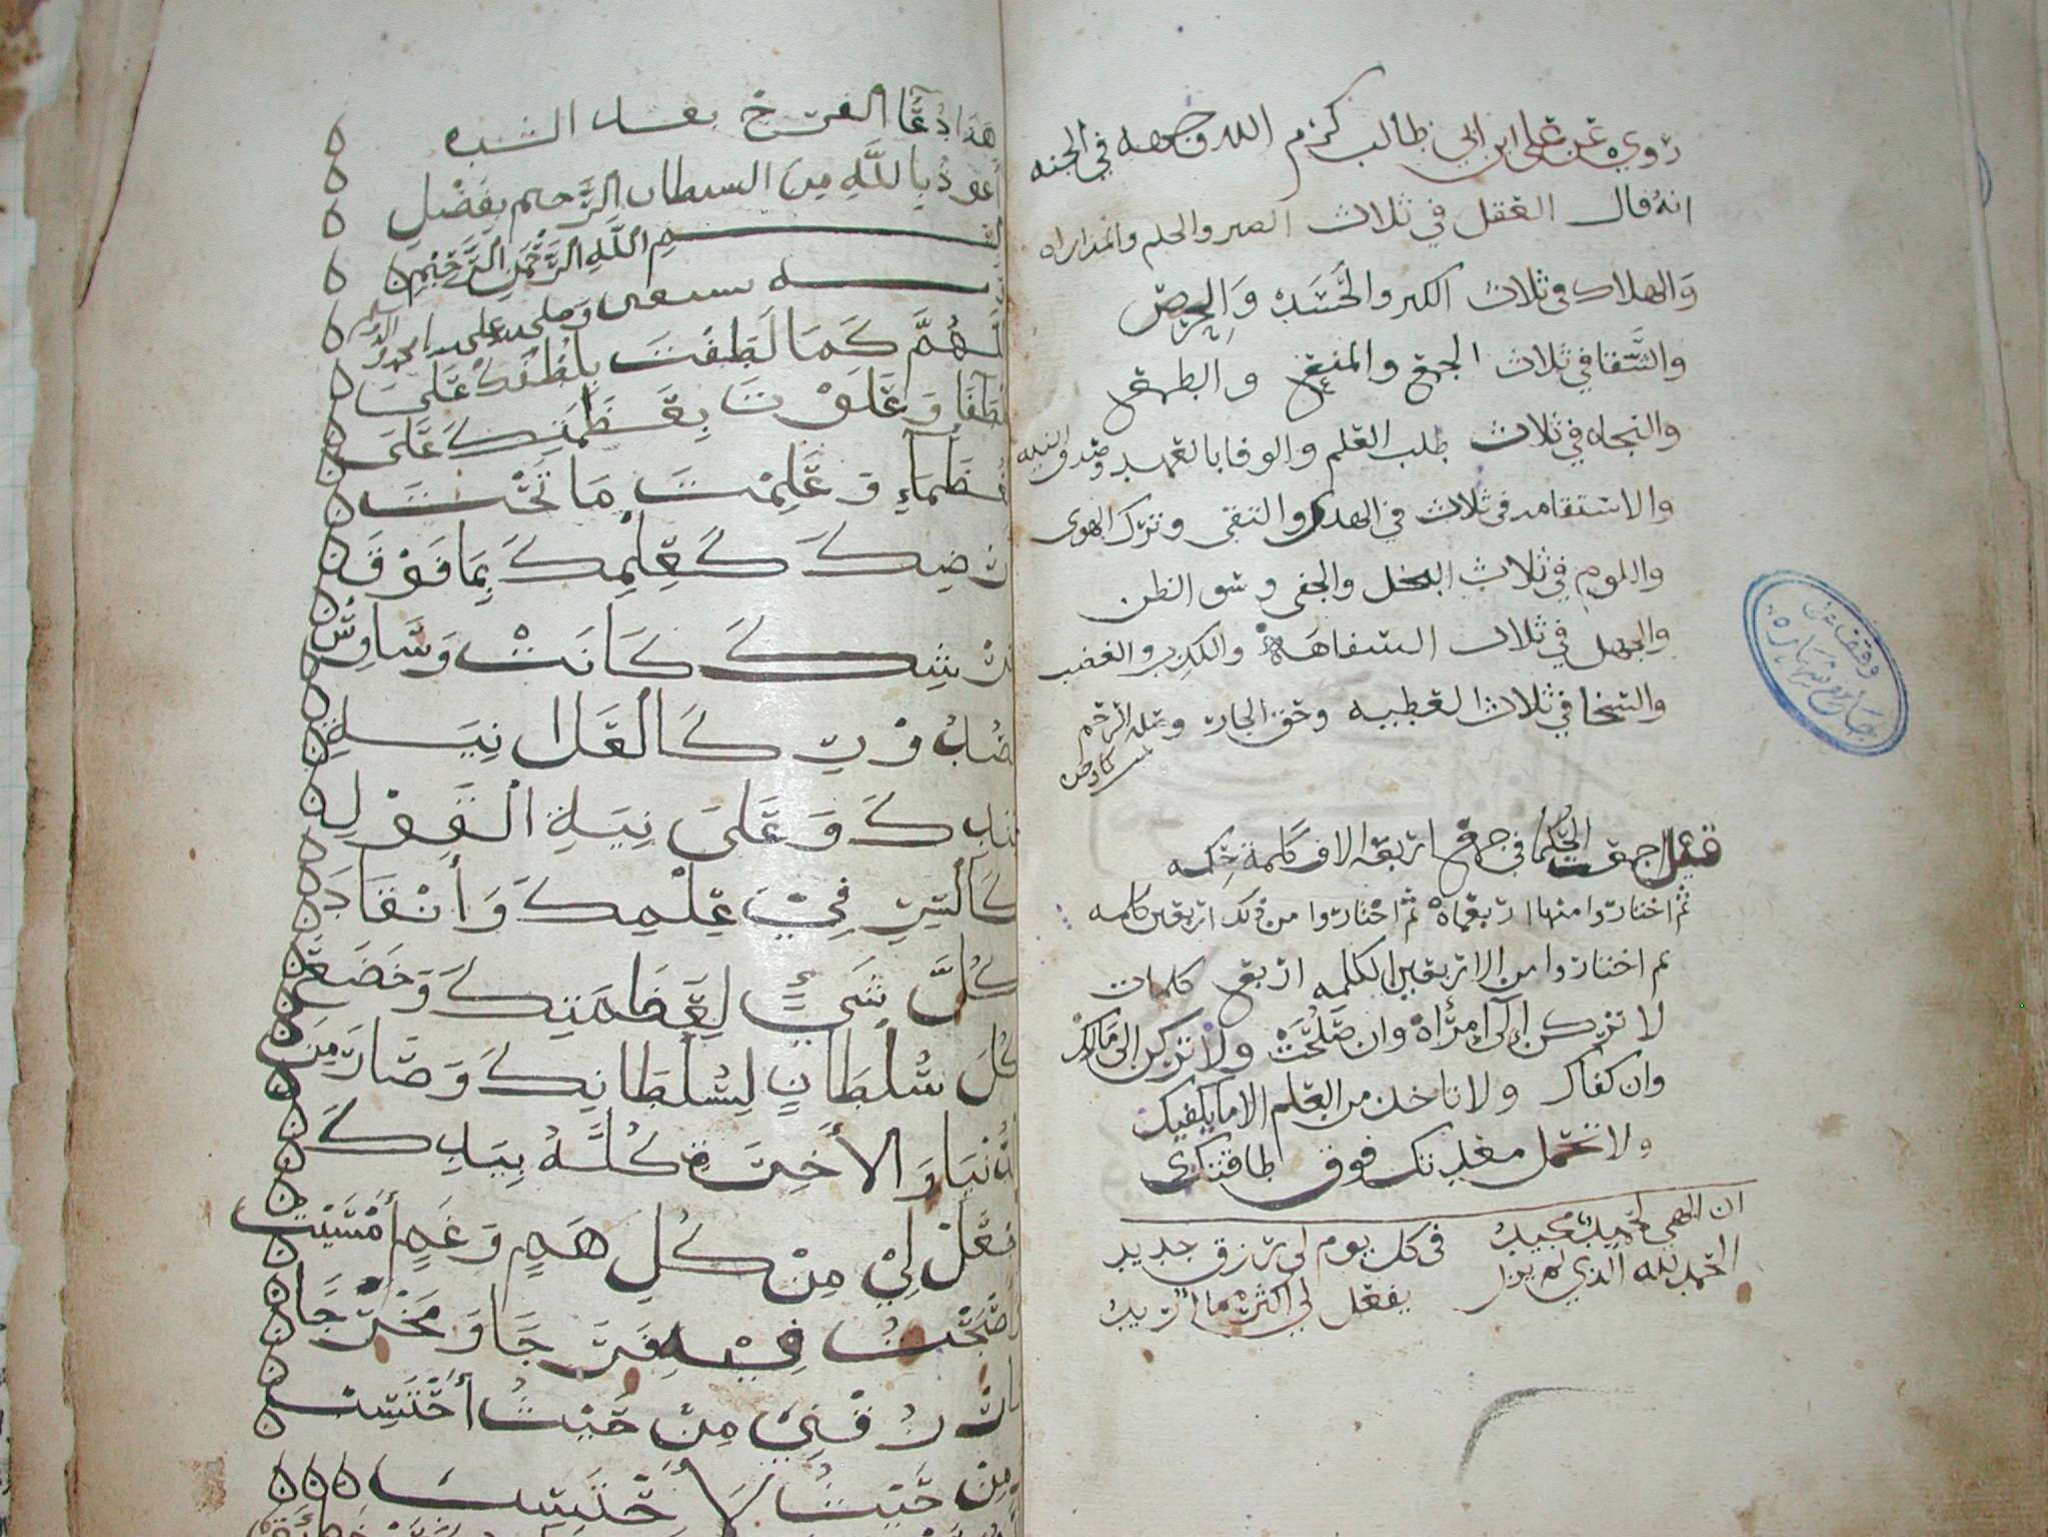 روي عن علي ابن ابي طالب كرم الله وجهه في الجنه
انه قال العقل في ثلاث الصبر والحلم والمداراه
والهلاك في ثلاث الكبر والحسد والحرص
والشقا في ثلاث الجمع والمنع والطمع
والنجاه في ثلاث طلب العلم والوفا بالعهد وصدق النيه
والاستقامه في ثلاث في الهدى والتقى وترك الهوى
واللوم في ثلاث البخل والجفى وسو الظن
والجهل في ثلاث السفاهه والكبر والغضب
والسخا في ثلاث العطيه وحق الجار وصله الرحم
قيل اجمعت الحكما في جمع اربعه الاف كلمة حكمه
ثم اختاروا منها اربعماة ثم اختاروا من ذلك اربعين كلمه
ثم اختاروا من الاربعين الكلمه اربع كلمات
لا تركن إلى إمرأة وان صلحت ولا تركن الى مالك
وان كفاك ولا تاخذ من العلم الا ما يكفيك
ولا تحمل معدتك فوق طاقتك
ان الهي لحميد مجيد في كل يوم لي رزق جديد
الحمد لله الذي لم يزل يفعل لي اكثر مما اريد
وقف
جامع شهاره
هذا دعا الفرج بعد الشده
أعوذ بالله من الشيطان الرجيم بفضل
بسم الله الرحمن الرحيم
وبه نستعين وصلى الله على سيدنا محمد واله وسلم
اللهم كما لطفت بلطفك على
اللطفا وعلوت بعظمتك على
العظماء وعلمت ما تحت
ارضك كعلمك بما فوق
عرشك كانت وساوس
الصدور كالعلانية
عندك وعلانية القول
كالسر في علمك وأنقاد
كل شيء لعظمتك وخضع
كل سلطان لسلطانك وصار من
الدنيا والأخرة كله بيدك
إجعل لي من كل هم وغم أمسيت
أو أصبحت فيه فرجا ومخرجا
وارزقني من حيث أحتسب
ومن حيث لا أحتسب